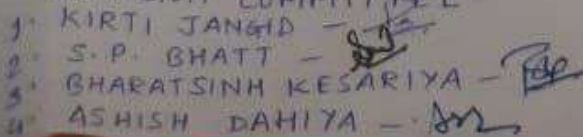 COMMITTEE
1. KIRTI JANGID -
2. S.P. BHATT -
3. BHARATSINH KESARIYA -
4. ASHISH DAHIYA -